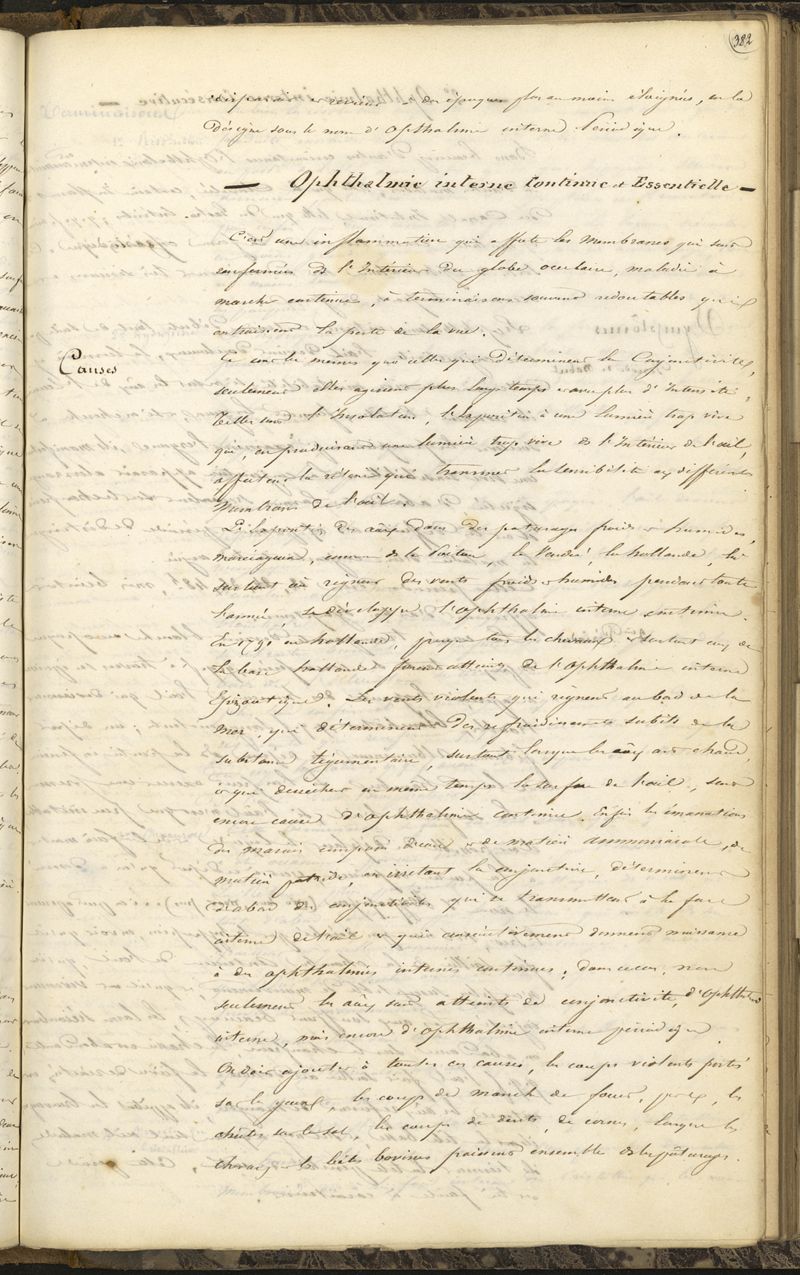 382
disparaît et revient à des époques plus ou moins éloignées, on la
désigne sous le nom d'ophthalmie interne Périodique.
— Ophthalmie interne Continue et Essentielle —
C'est une inflammation qui affecte les membranes qui sont
renfermées ds l'Intérieur du globe oculaire, maladie à
marche continue, à terminaisons souvent redoutables qui
entrainent la perte de la vue.
Causes
Ce sont les memes que celles qui déterminent la Conjonctivite,
seulement elles agissent plus longtemps et avec plus d'Intensité.
Telles sont l'Insolation, l'exposition à une lumière trop vive
qui, en produisant une lumière trop vive ds l'Intérieur de l'œil,
affectent la rétine qui transmet la sensibilité aux différentes
membranes de l'œil.
L'Exposition des aux dans des paturages froids et humides,
marécageux, comme ds le Poitou, la Vendée, la hollande, là
surtout où règnent des vents froids et humides pendant toute
l'année, se développe l'ophthalmie interne continue.
En 1790 en hollande, presque tous les chevaux et surtout ceux de
la basse hollande furent atteints de l'ophthalmie interne
Epizootique. Les vents violents qui règnent au bord de la
mer, qui déterminent des refroidissements subits de la
substance tégumentaire, surtout lorsque les aux ont chaud,
et qui dessèchent en même temps la surface de l'œil, sont
encore cause d'ophthalmie continue. Enfin les émanations
des marais composés d'eau et de matière ammoniacale, de
matière putride, en irritant la conjonctive, déterminent
d'abord des conjonctivites qui se transmettent à la face
interne de l'œil et qui consécutivement donnent naissance
à des ophthalmies internes continues; dans ce cas, non
seulement les aux sont atteints de conjonctivite, d'ophthalmie
interne, mais encore d'ophthalmie interne périodique.
On doit ajouter à toutes ces causes, les coups violents portés
sur les yeux, les coups de manche de fouet, par ex, les
chutes sur le sol, les coups de dents, de cornes, lorsque les
chevaux et les bêtes bovines paissent ensemble ds les pâturages.